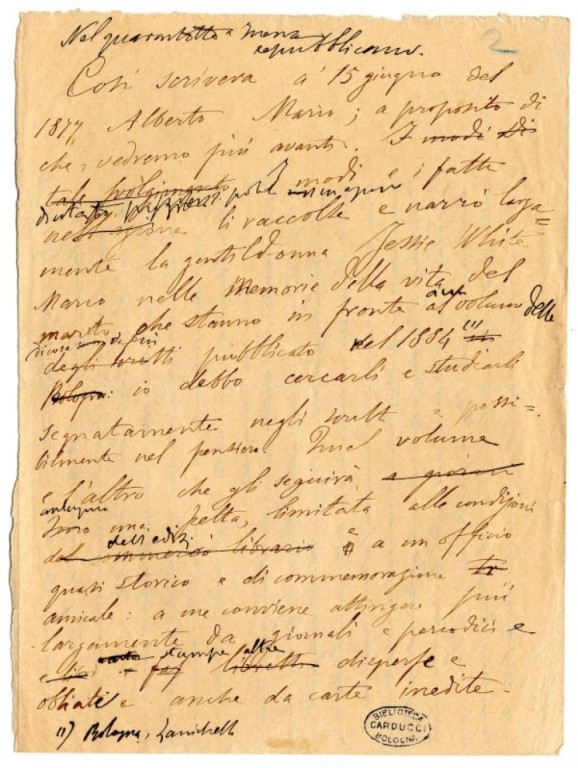 Nel quarantotto e mena
repubblicano.
2
Così scriveva a' 15 giugno del
1877 Alberto Mario; a proposito di
che, vedremo più avanti. I modi di
tale svolgimento I modi e i fatti
nell'azione li raccolse e narrò larga=
mente la gentildonna Jessie White
Mario nelle Memorie della vita del
marito che stanno in fronte al volume delle
degli scritti pubblicato del 1884 (1) in
Bologna: io debbo cercarli e studiarli
segnatamente negli scritti e possi=
bilmente nel pensiero. Quel volume
e l'altro che gli seguirà,
una scelta, limitata alle condizioni
dell'ediz.
del commercio librario e a un officio
quasi storico e di commemorazione
amicale: a me conviene attingere più
largamente da giornali e periodici e
carte stampe altre
libretti disperse e
obliate e anche da carte inedite.
(1) Bologna, Zanichelli
BIBLIOTECA
CARDUCCI
BOLOGNA